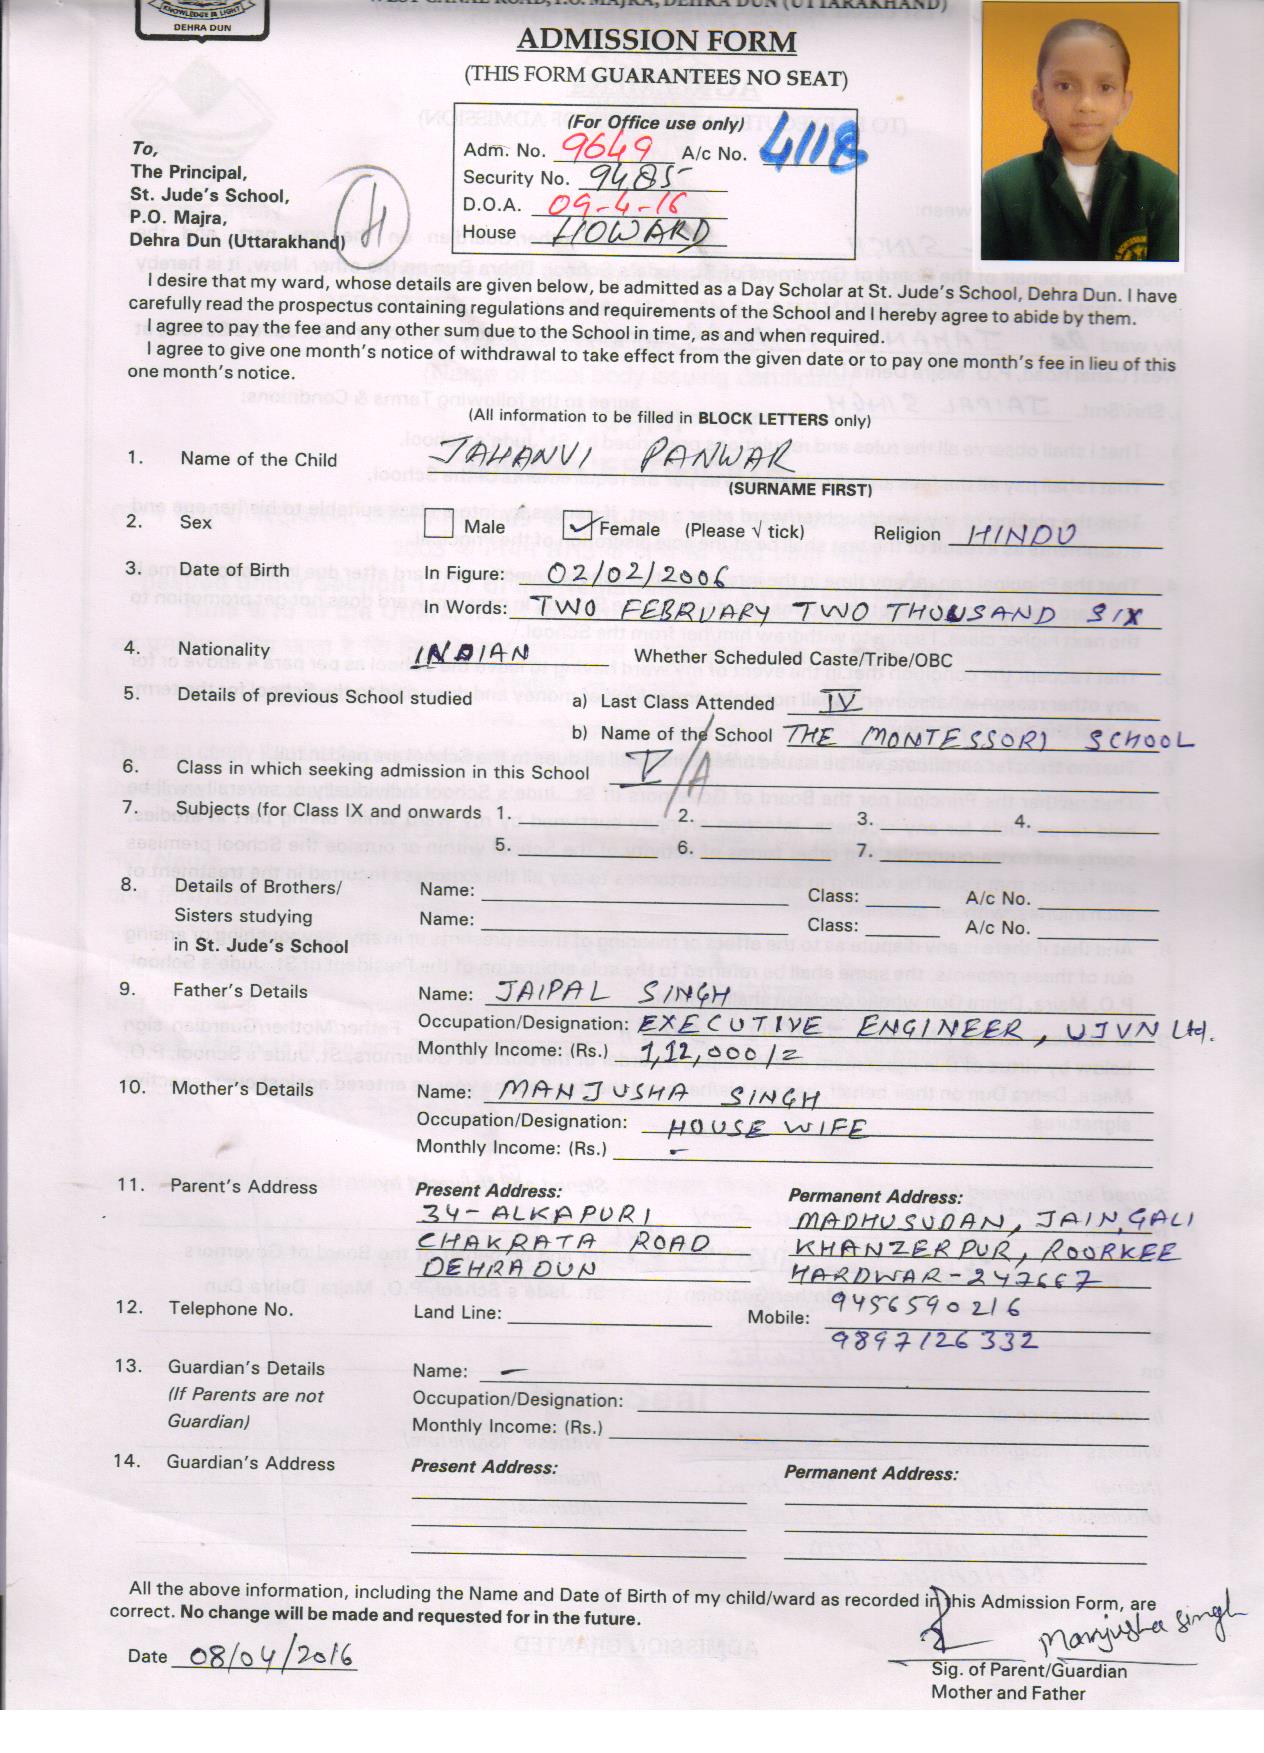 KNOWLEDGE IS LIGHT
DEHRA DUN
WEST CANAL ROAD, P.O. MAJRA, DEHRA DUN (UTTARAKHAND)
ADMISSION FORM
(THIS FORM GUARANTEES NO SEAT)
(For Office use only)
Adm. No. 9649 A/c No. 4118
Security No. 9485
D.O.A. 09-4-16
House HOWARD
To,
The Principal,
St. Jude's School,
P.O. Majra,
Dehra Dun (Uttarakhand)
H
I desire that my ward, whose details are given below, be admitted as a Day Scholar at St. Jude's School, Dehra Dun. I have
carefully read the prospectus containing regulations and requirements of the School and I hereby agree to abide by them.
I agree to pay the fee and any other sum due to the School in time, as and when required.
I agree to give one month's notice of withdrawal to take effect from the given date or to pay one month's fee in lieu of this
one month's notice.
(All information to be filled in BLOCK LETTERS only)
1. Name of the Child JAHANVI PANWAR
(SURNAME FIRST)
2. Sex Male ✓ Female (Please √ tick) Religion HINDU
3. Date of Birth In Figure: 02/02/2006
In Words: TWO FEBRUARY TWO THOUSAND SIX
4. Nationality INDIAN Whether Scheduled Caste/Tribe/OBC
5. Details of previous School studied a) Last Class Attended IV
b) Name of the School THE MONTESSORI SCHOOL
6. Class in which seeking admission in this School V/A
7. Subjects (for Class IX and onwards 1. 2. 3. 4.
5. 6. 7.
8. Details of Brothers/ Name: Class: A/c No.
Sisters studying Name: Class: A/c No.
in St. Jude's School
9. Father's Details Name: JAIPAL SINGH
Occupation/Designation: EXECUTIVE ENGINEER, UJVN Ltd.
Monthly Income: (Rs.) 1,12,000/=
10. Mother's Details Name: MANJUSHA SINGH
Occupation/Designation: HOUSE WIFE
Monthly Income: (Rs.) -
11. Parent's Address Present Address: Permanent Address:
34-ALKAPURI MADHUSUDAN, JAIN GALI
CHAKRATA ROAD KHANZERPUR, ROORKEE
DEHRADUN HARDWAR-247667
12. Telephone No. Land Line: Mobile: 9456590216
9897126332
13. Guardian's Details Name: -
(If Parents are not Occupation/Designation:
Guardian) Monthly Income: (Rs.)
14. Guardian's Address Present Address: Permanent Address:
All the above information, including the Name and Date of Birth of my child/ward as recorded in this Admission Form, are
correct. No change will be made and requested for in the future.
Manjusha Singh
Date 08/04/2016
Sig. of Parent/Guardian
Mother and Father